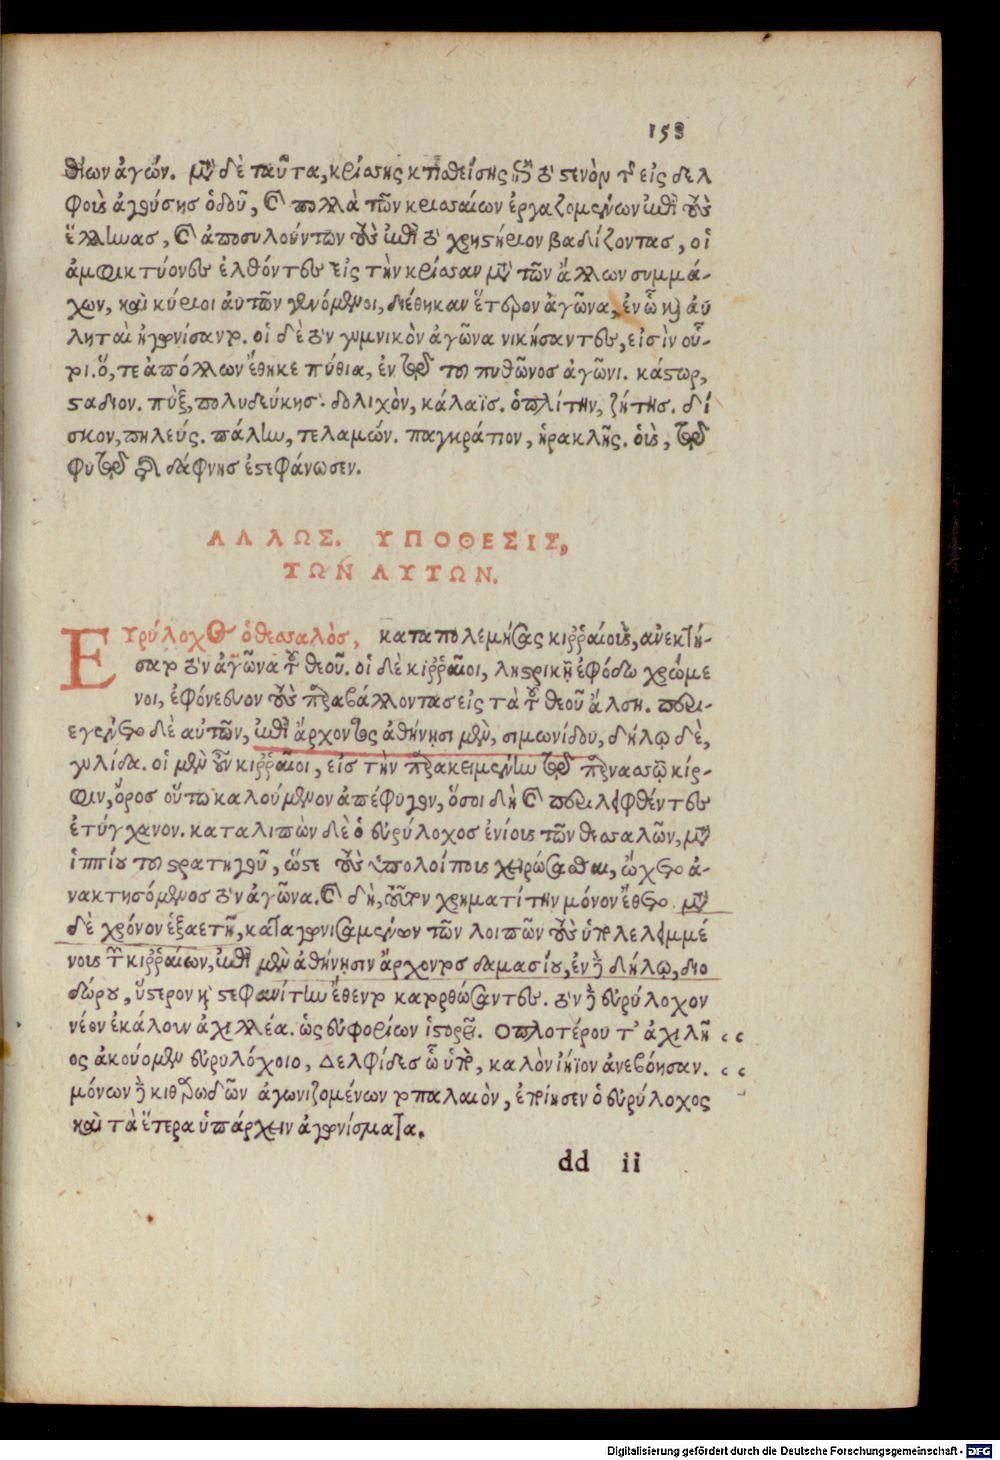 153
θίων ἀγών. μετὰ δὲ ταῦτα, κρίσης κατατεθείσης ἐπὶ τὸ στενὸν τῆς εἰς δελ
φοὺς ἀγούσης ὁδοῦ, καὶ πολλὰ τῶν κρισσαίων ἐργαζομένων κατὰ τοὺς
ἕλληνας, καὶ ἀποσυλούντων τοὺς ἐπὶ τὸ χρηστήριον βαδίζοντας, οἱ
ἀμφικτύονες ἐλθόντες εἰς τὴν κρίσσαν μετὰ τῶν ἄλλων συμμά-
χων, καὶ κύριοι αὐτῶν γενόμενοι, διέθηκαν ἕτερον ἀγῶνα, ἐν ᾧ καὶ αὐ
ληταὶ ἠγωνίσαντο. οἱ δὲ τὸν γυμνικὸν ἀγῶνα νικήσαντες, εἰσὶν οὗ-
τοι. ὅ, τε ἀπόλλων ἔθηκε πύθια, ἐν τῷ τοῦ πυθῶνος ἀγῶνι. κάστωρ,
στάδιον. πὺξ, πολυδεύκης. δολιχὸν, κάλαϊς. ὁπλίτην, ζήτης. δί
σκον, πηλεύς. πάλην, τελαμών. παγκράτιον, ἡρακλῆς. οὓς, τῷ
φυτῷ τῆς δάφνης ἐστεφάνωσεν.
ΑΛΛΩΣ. ΥΠΟΘΕΣΙΣ,
ΤΩΝ ΑΥΤΩΝ.
ΕΥρύλοχος ὁ θεσσαλὸς, καταπολεμήσας κιῤῥαίους, ἀνεκτή-
σατο τὸν ἀγῶνα τοῦ θεοῦ. οἱ δὲ κιῤῥαῖοι, λῃστρικῇ ἐφόδῳ χρώμε
νοι, ἐφόνευον τοὺς παραβάλλοντας εἰς τὰ τοῦ θεοῦ ἄλση. περιε-
γένετο δὲ αὐτῶν, ἐπὶ ἄρχοντος ἀθήνησι μὲν, σιμωνίδου, δήλῳ δὲ,
γυλίδα. οἱ μὲν οὖν κιῤῥαῖοι, εἰς τὴν παρακειμένην τῷ παρνασῷ κίρ-
φιν, ὄρος οὕτω καλούμενον ἀπέφυγον, ὅσοι δὴ καὶ περιλειφθέντες
ἐτύγχανον. καταλιπὼν δὲ ὁ εὐρύλοχος ἐνίους τῶν θεσσαλῶν, μετὰ
ἱππίου τοῦ στρατηγοῦ, ὥστε τοὺς ὑπολοίπους χειρώσασθαι, ᾤχετο ἀ-
νακτησόμενος τὸν ἀγῶνα. καὶ δὴ, τοῦτον χρηματίτην μόνον ἔθετο. μετὰ
δὲ χρόνον ἑξαετῆ, καταγωνισαμένων τῶν λοιπῶν τοὺς ὑπολελειμμέ
νους τῶν κιῤῥαίων, ἐπὶ μὲν ἀθήνησιν ἄρχοντος δαμασίου, ἐν δὲ δήλῳ, διο
δώρου, ὕστερον καὶ στεφανίτην ἔθεντο κατορθώσαντες. τὸν δὲ εὐρύλοχον
νέον ἐκάλουν ἀχιλλέα. ὡς εὐφορίων ἱστορεῖ. Οπλοτέρου τ' ἀχιλῆ
ος ἀκούομεν εὐρυλόχοιο, Δελφίδες ᾧ ὑπὸ, καλὸν ἰήϊον ἀνεβόησαν.
μόνων δὲ κιθαρῳδῶν ἀγωνιζομένων τὸ παλαιὸν, ἐποίησεν ὁ εὐρύλοχος
καὶ τὰ ἕτερα ὑπάρχειν ἀγωνίσματα.
dd ii
Digitalisierung gefördert durch die Deutsche Forschungsgemeinschaft - DFG